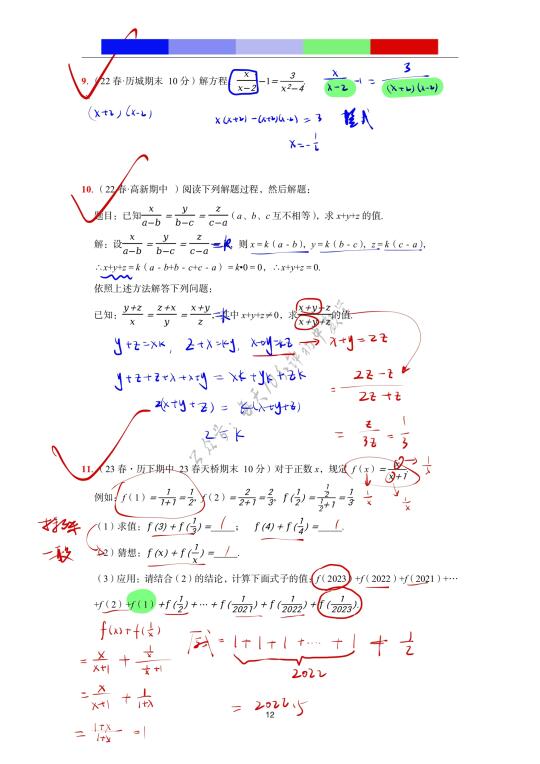 9.（22 春·历城期末 10 分）解方程 x/(x−2) −1= 3/(x²−4)
x/(x−2) −1 = 3/((x+2)(x−2))
(x+2)(x−2)
x(x+2) −(x+2)(x−2) = 3
x=−1/2
10.（22 春·高新期中 ）阅读下列解题过程，然后解题：
题目：已知 x/(a−b) = y/(b−c) = z/(c−a)（a、b、c 互不相等），求 x+y+z 的值.
解：设 x/(a−b) = y/(b−c) = z/(c−a) =k, 则 x=k（a - b），y=k（b - c），z=k（c - a），
∴x+y+z=k（a - b+b - c+c - a）=k•0=0，∴x+y+z=0.
依照上述方法解答下列问题：
已知：(y+z)/x = (z+x)/y = (x+y)/z =k 其中 x+y+z≠0，求 (x+y−z)/(x+y+z) 的值.
y+z=xk, z+x=ky, x+y=kz → x+y=2z
y+z+z+x+x+y = xk+yk+zk
= (2z−z)/(2z+z)
2(x+y+z) = k(x+y+z)
2=k
= z/3z = 1/3
11.（23 春·历下期中 23 春天桥期末 10 分）对于正数 x，规定 f（x）= x/(x+1)
1/x
例如：f（1）= 1/(1+1) = 1/2, f（2）= 2/(2+1) = 2/3, f (1/2) = (1/2)/(1/2+1) = 1/3
1/x 1/x
（1）求值：f (3) + f (1/3) = 1 ； f(4) + f (1/4) = 1 .
（2）猜想：f (x) + f (1/x) = 1 .
一般
（3）应用：请结合（2）的结论，计算下面式子的值：f（2023）+f（2022）+f（2021）+⋯
+f（2）+f（1）+f (1/2) + ⋯ + f (1/2021) + f (1/2022) + f (1/2023).
f(x)+f(1/x)
原式 = 1+1+1+⋯+1 + 1/2
= x/(x+1) + (1/x)/(1/x+1)
2022
= x/(x+1) + 1/(1+x)
= 2022.5
= (1+x)/(1+x) =1
12